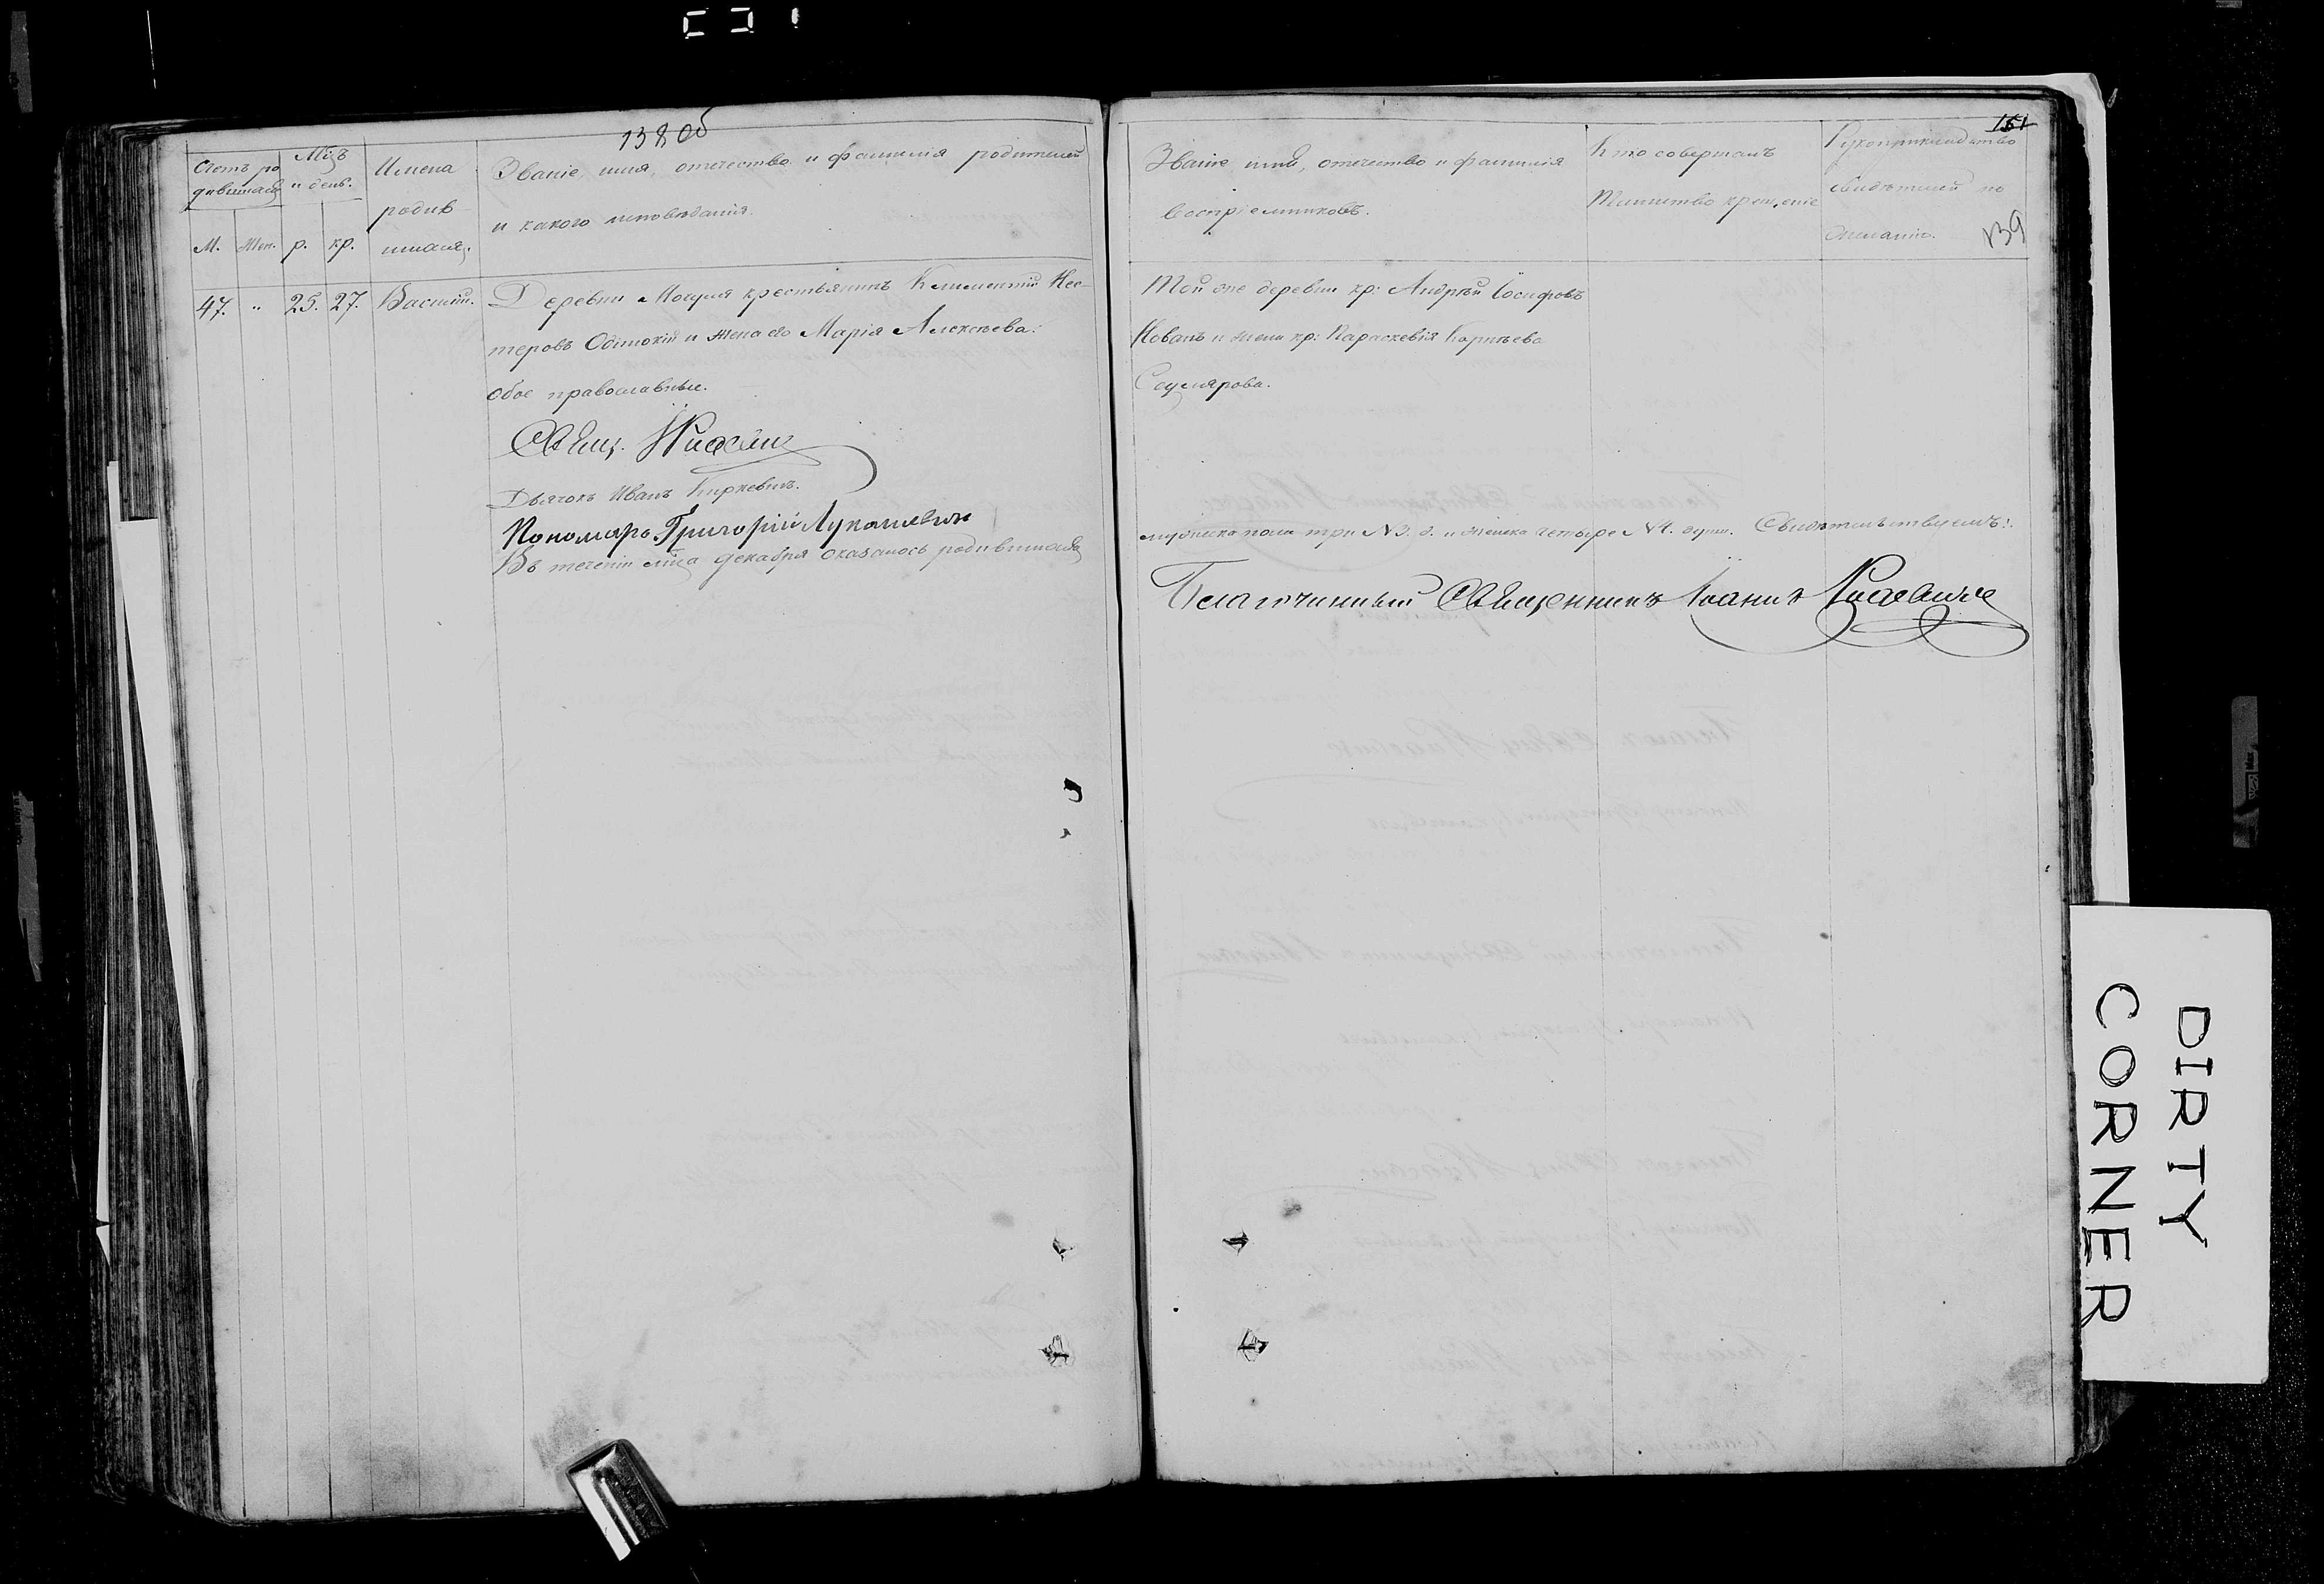 138 об
Счетъ ро
дившихся
Мцъ
и день.
М.
Жен.
р.
кр.
Имена
родив
шихся.
Званіе, имя, отечество и фамилія родителей
и какого исповеданія.
47. " 25. 27. Василій.
Деревни крестьянинъ Климентій Нес-
теровъ и жена его Марія Алексеева.
обое православные.
Свящ.
Дьячокъ Иванъ
Пономарь Григорій Лукашевич
Въ теченіи мца декабря оказалось родившихся
151
139
Званіе, имя, отечество и фамилія
воспріемниковъ.
Кто совершалъ
Таинство крещеніе
Рукоприкладство
свидетелей по
желанію.
Той же деревни кр: Андрей Іосифовъ
Кованъ и жена кр: Параскевія
мужеска пола три N 3. д. и женска четыре N 4. души. Свидетельствуемъ:
Благочинный Священникъ Іоаннъ
DIRTY
CORNER